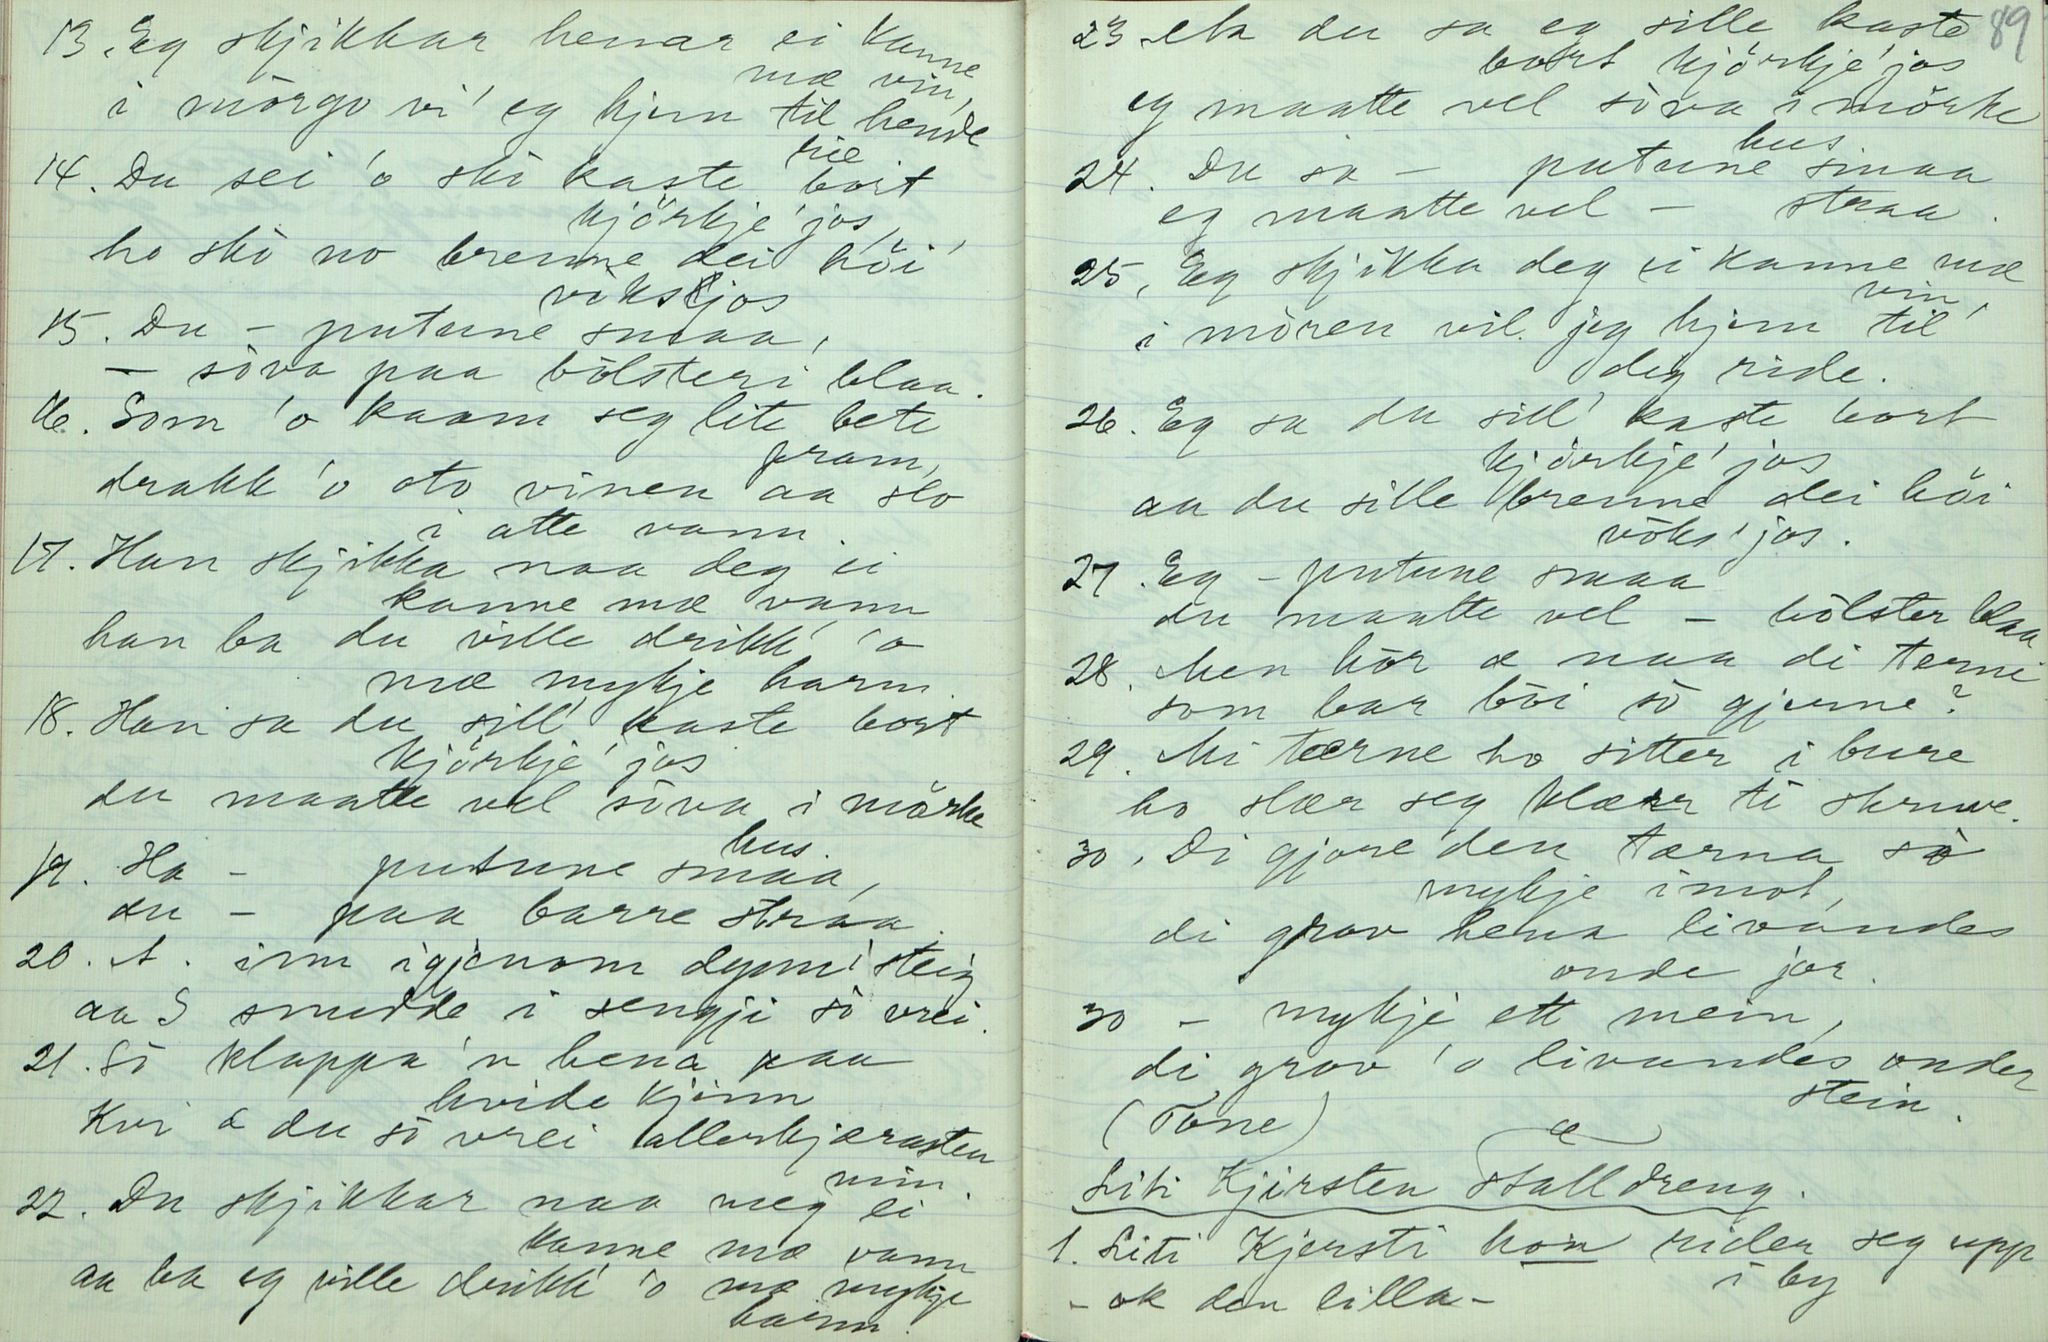 13. Eg skjikkar henar ei Kanne
mæ vin,
i mörgo vi' eg hjem til hende
rie
14. Du sei 'o ski kaste bort
kjörkje'jos,
ho ski no brenne dei höi'
voksljos
15. Du – putune smaa,
– söva paa bölsteri blaa.
16. Som 'o kaam seg lite bete
fram,
drakk 'o oto vinen aa slo
i atte vann
17. Han skjikka naa deg ei
kanne mæ vann
han ba du ville drikk' 'o
mæ mykje harm.
18. Han sa du sill' kaste bort
kjörkje'jos
du maatte vel söva i mörke
hus.
19. Ha – putune smaa,
du – paa barre straa.
20. A. inn igjenom dynn' steig
aa S snudde i sengji sö vrei.
21. Sö klappa 'n hena paa
hvide kjinn
Kvi æ du sö vrei allerkjærasten
min.
22. Du skjikkar naa meg ei
kanne mæ vann
aa ba eg ville drikk' 'o mæ mykje
harm.
89
23 du sa eg sille kaste
bort kjörkje'jos
eg maatte vel söva i mörke
hus
24. Du sa – putune smaa
eg maatte vel – straa.
25. Eg skjikka deg ei Kanne mæ
vin,
i mören vil jeg hjem til
deg ride.
26. Eg sa du sill' kaste bort
kjörkje'jos
aa du sille brenne dei höi
vöks'jos.
27. Eg – putune smaa
du maatte vel – bölster blaa
28. Men hör æ naa di terne
som bar böi sö gjerne?
29. Mi tærne ho sitter i bure
ho slær seg klæer ti skruve.
30. Di gjore den tærna sö
mykje imot,
di grov hena livandes
onde jor.
30 – mykje ett mein,
di grov 'o livandes onder
stein.
(Tone)
æ
Liti Kjirsten Stalldreng.
1. Liti Kjersti hon rider seg upp
i by
– ok den lilla –